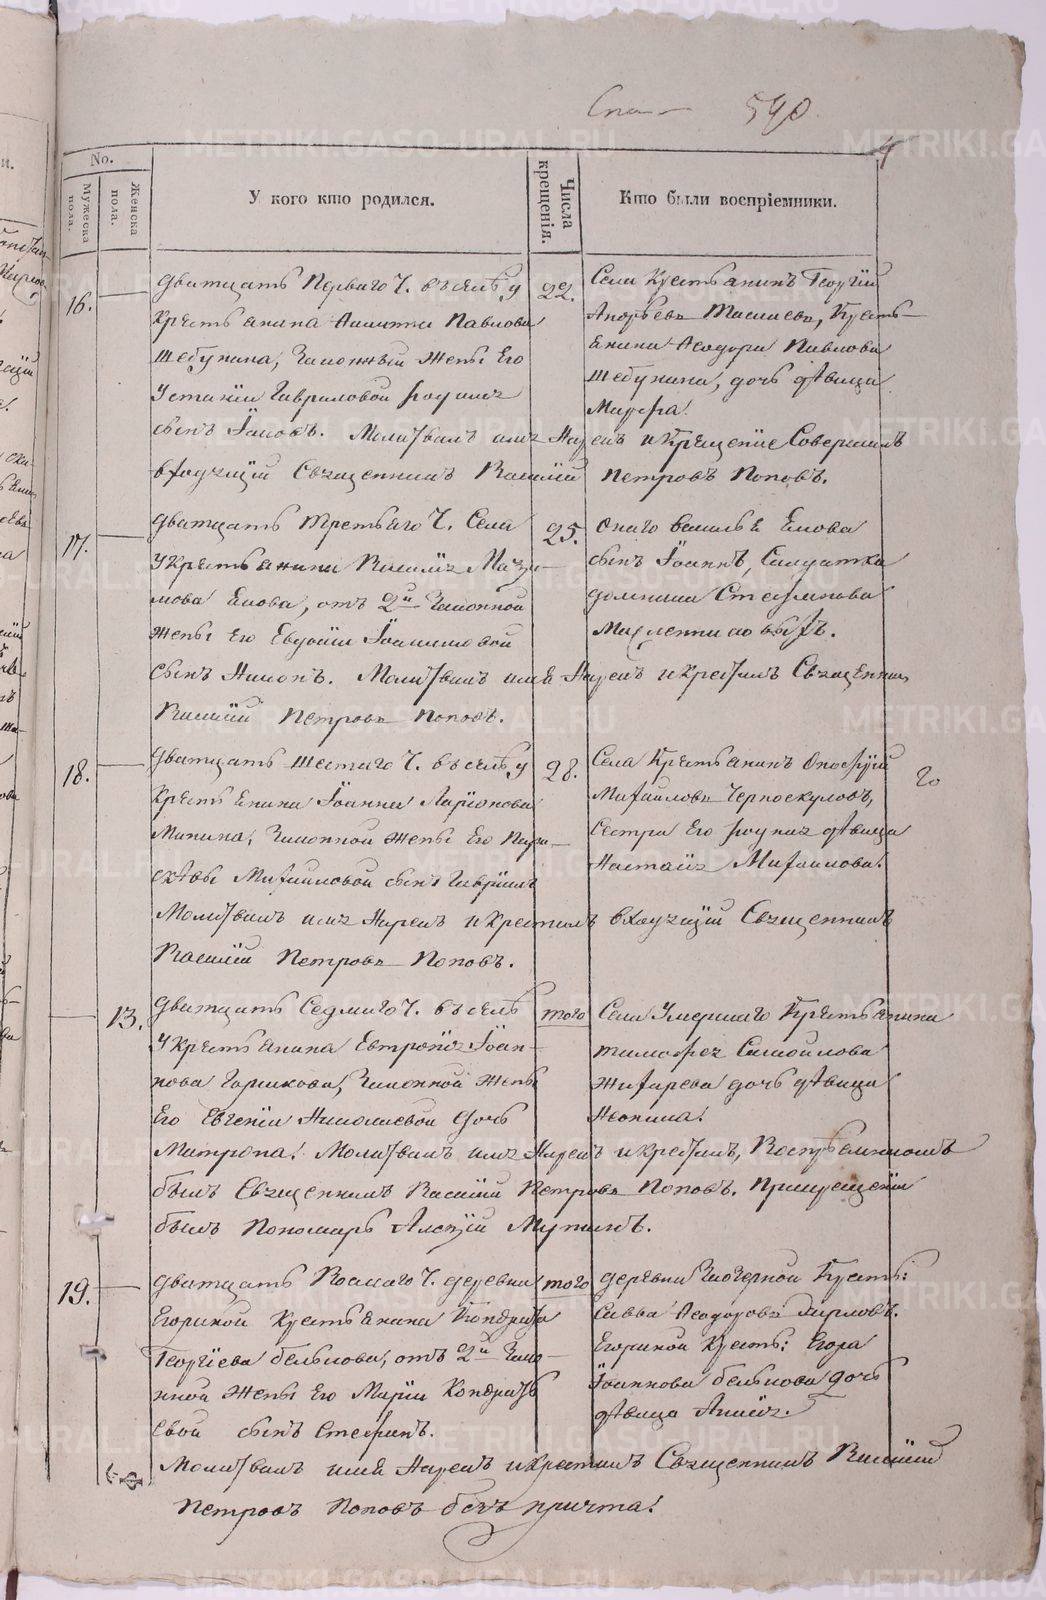 590
4
No.
Мужеска пола.
Женска пола.
У кого кто родился.
Числа крещенія.
Кто были воспріемники.
16.
Дватцать Перваго Ч. въ селѣ у
Крестьянина Никиты Павлова
Шебунина, Законныя жены Его
Устиніи Гавриловой родился
сынъ Іаковъ. Молитвилъ имя Нарекъ и Крещеніе Совершилъ
входящій Священникъ Василій Петровъ Поповъ.
22.
Села Крестьянинъ Георгій
Андреевъ
Кресть-
янина Ѳеодора Павлова
Шебунина, дочь дѣвица
Марфа.
17.
Двадцать третьяго Ч. Села
у Крестьянина Василья
Енова, отъ 2й Законной
жены Его Евдокіи Іоакимовой
сынъ Никонъ. Молитвилъ имя Нарекъ и Крестилъ Священникъ
Василій Петровъ Поповъ.
25.
Онаго Василья Енова
сынъ Іоаннъ, Солдатка
Домника Стефанова
18.
Двадцать Шестаго Ч. въ селѣ у
Крестьянина Іоанна Ларіонова
Минина, Законной жены Его Пара-
скѣвы Михайловой сынъ Гавріилъ
Молитвилъ имя Нарекъ и Крестилъ входящій Священникъ
Василій Петровъ Поповъ.
28.
Села Крестьянинъ Онофрій
Михайловъ Черноскуловъ,
Сестра Его родная дѣвица
Настасія Михайлова.
13.
Двадцать Седмаго Ч. въ селѣ
у Крестьянина Евтропія Іоан-
нова Горшкова, Законной жены
Его Евгеніи Николаевой дочь
Матрона. Молитвилъ имя Нарекъ и крестилъ, Воспріемникомъ
былъ Священникъ Василій Петровъ Поповъ. При крещеніи
былъ Пономарь Алексій
того
Села Умершаго Крестьянина
Тимофея Самойлова
Жихарева дочь дѣвица
19.
Двадцать Восмаго Ч. деревни
Егориной Крестьянина Кондрата
Георгіева Белькова, отъ 2й Зако-
нной жены Его Маріи Кондрать
евой сынъ Стефанъ.
Молитвилъ имя Нарекъ и Крестилъ Священникъ Василій
Петровъ Поповъ безъ причта.
того
деревни Кресть:
Савва Ѳеодоровъ
Егориной Кресть: Егора
Іоаннова Белькова дочь
дѣвица